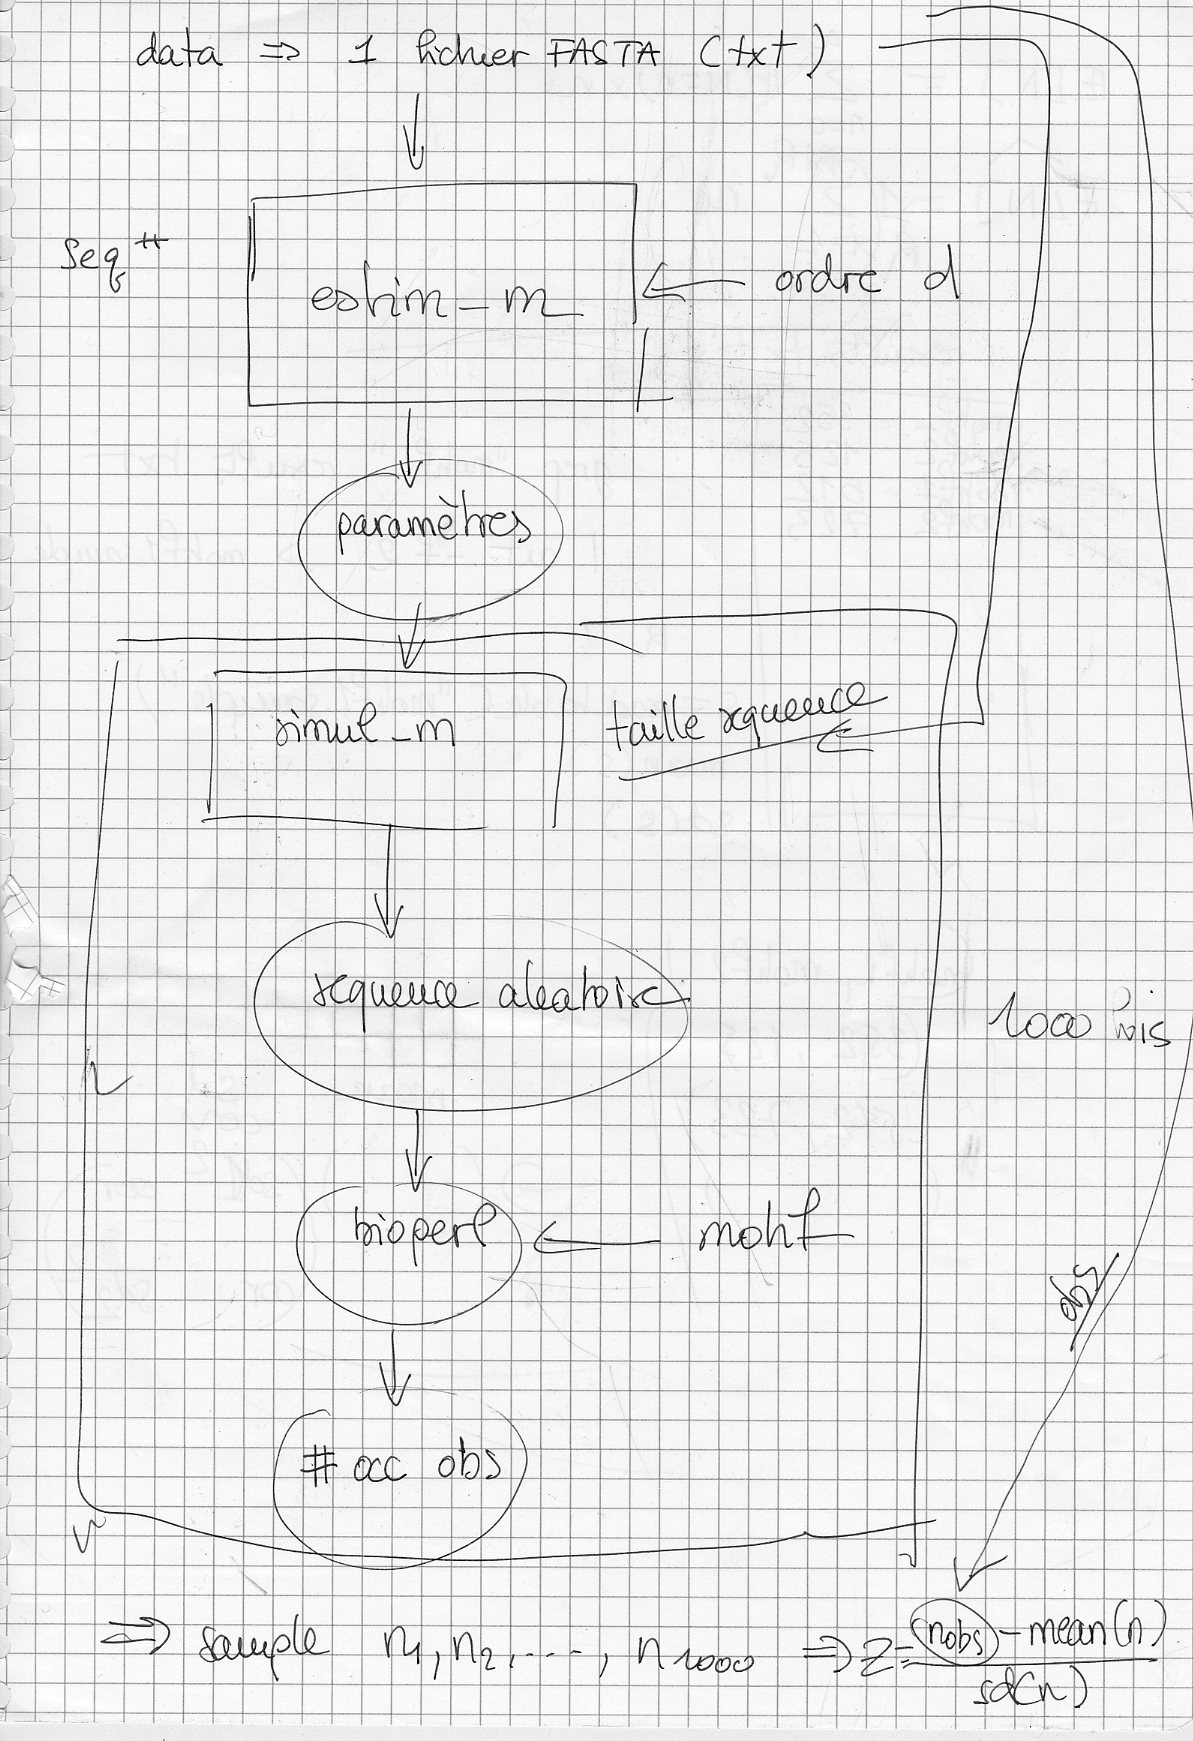 data ⇒ 1 fichier FASTA (txt)
Seq++
estim_m ← ordre d
paramètres
simul_m
taille sequence
sequence aleatoire
1000 fois
bioperl ← motif
obs
# occ obs
⇒ sample n1, n2, ..., n1000 ⇒ Z = (nobs) - mean(n)
sd(n)